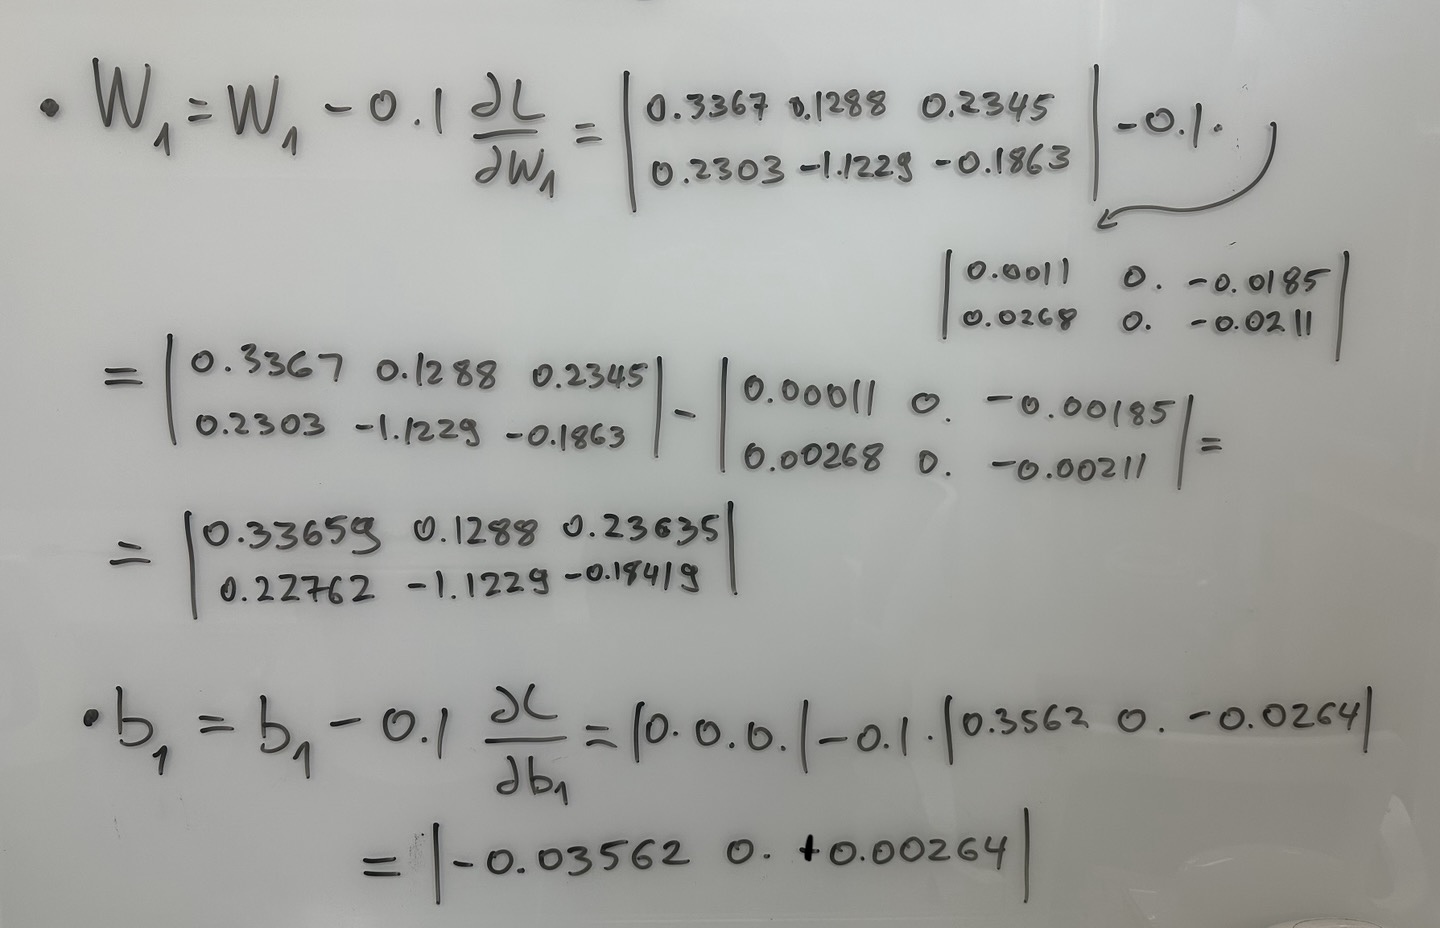 • W₁ = W₁ - 0.1 ∂L/∂W₁ = | 0.3367 0.1288 0.2345 | - 0.1 ·
| 0.2303 -1.1229 -0.1863 |
| 0.0011 0. -0.0185 |
| 0.0268 0. -0.0211 |
= | 0.3367 0.1288 0.2345 | - | 0.00011 0. -0.00185 | =
| 0.2303 -1.1229 -0.1863 | | 0.00268 0. -0.00211 |
= | 0.33659 0.1288 0.23635 |
| 0.22762 -1.1229 -0.18419 |
• b₁ = b₁ - 0.1 ∂L/∂b₁ = |0. 0. 0.| - 0.1 · | 0.3562 0. -0.0264 |
= | -0.03562 0. +0.00264 |